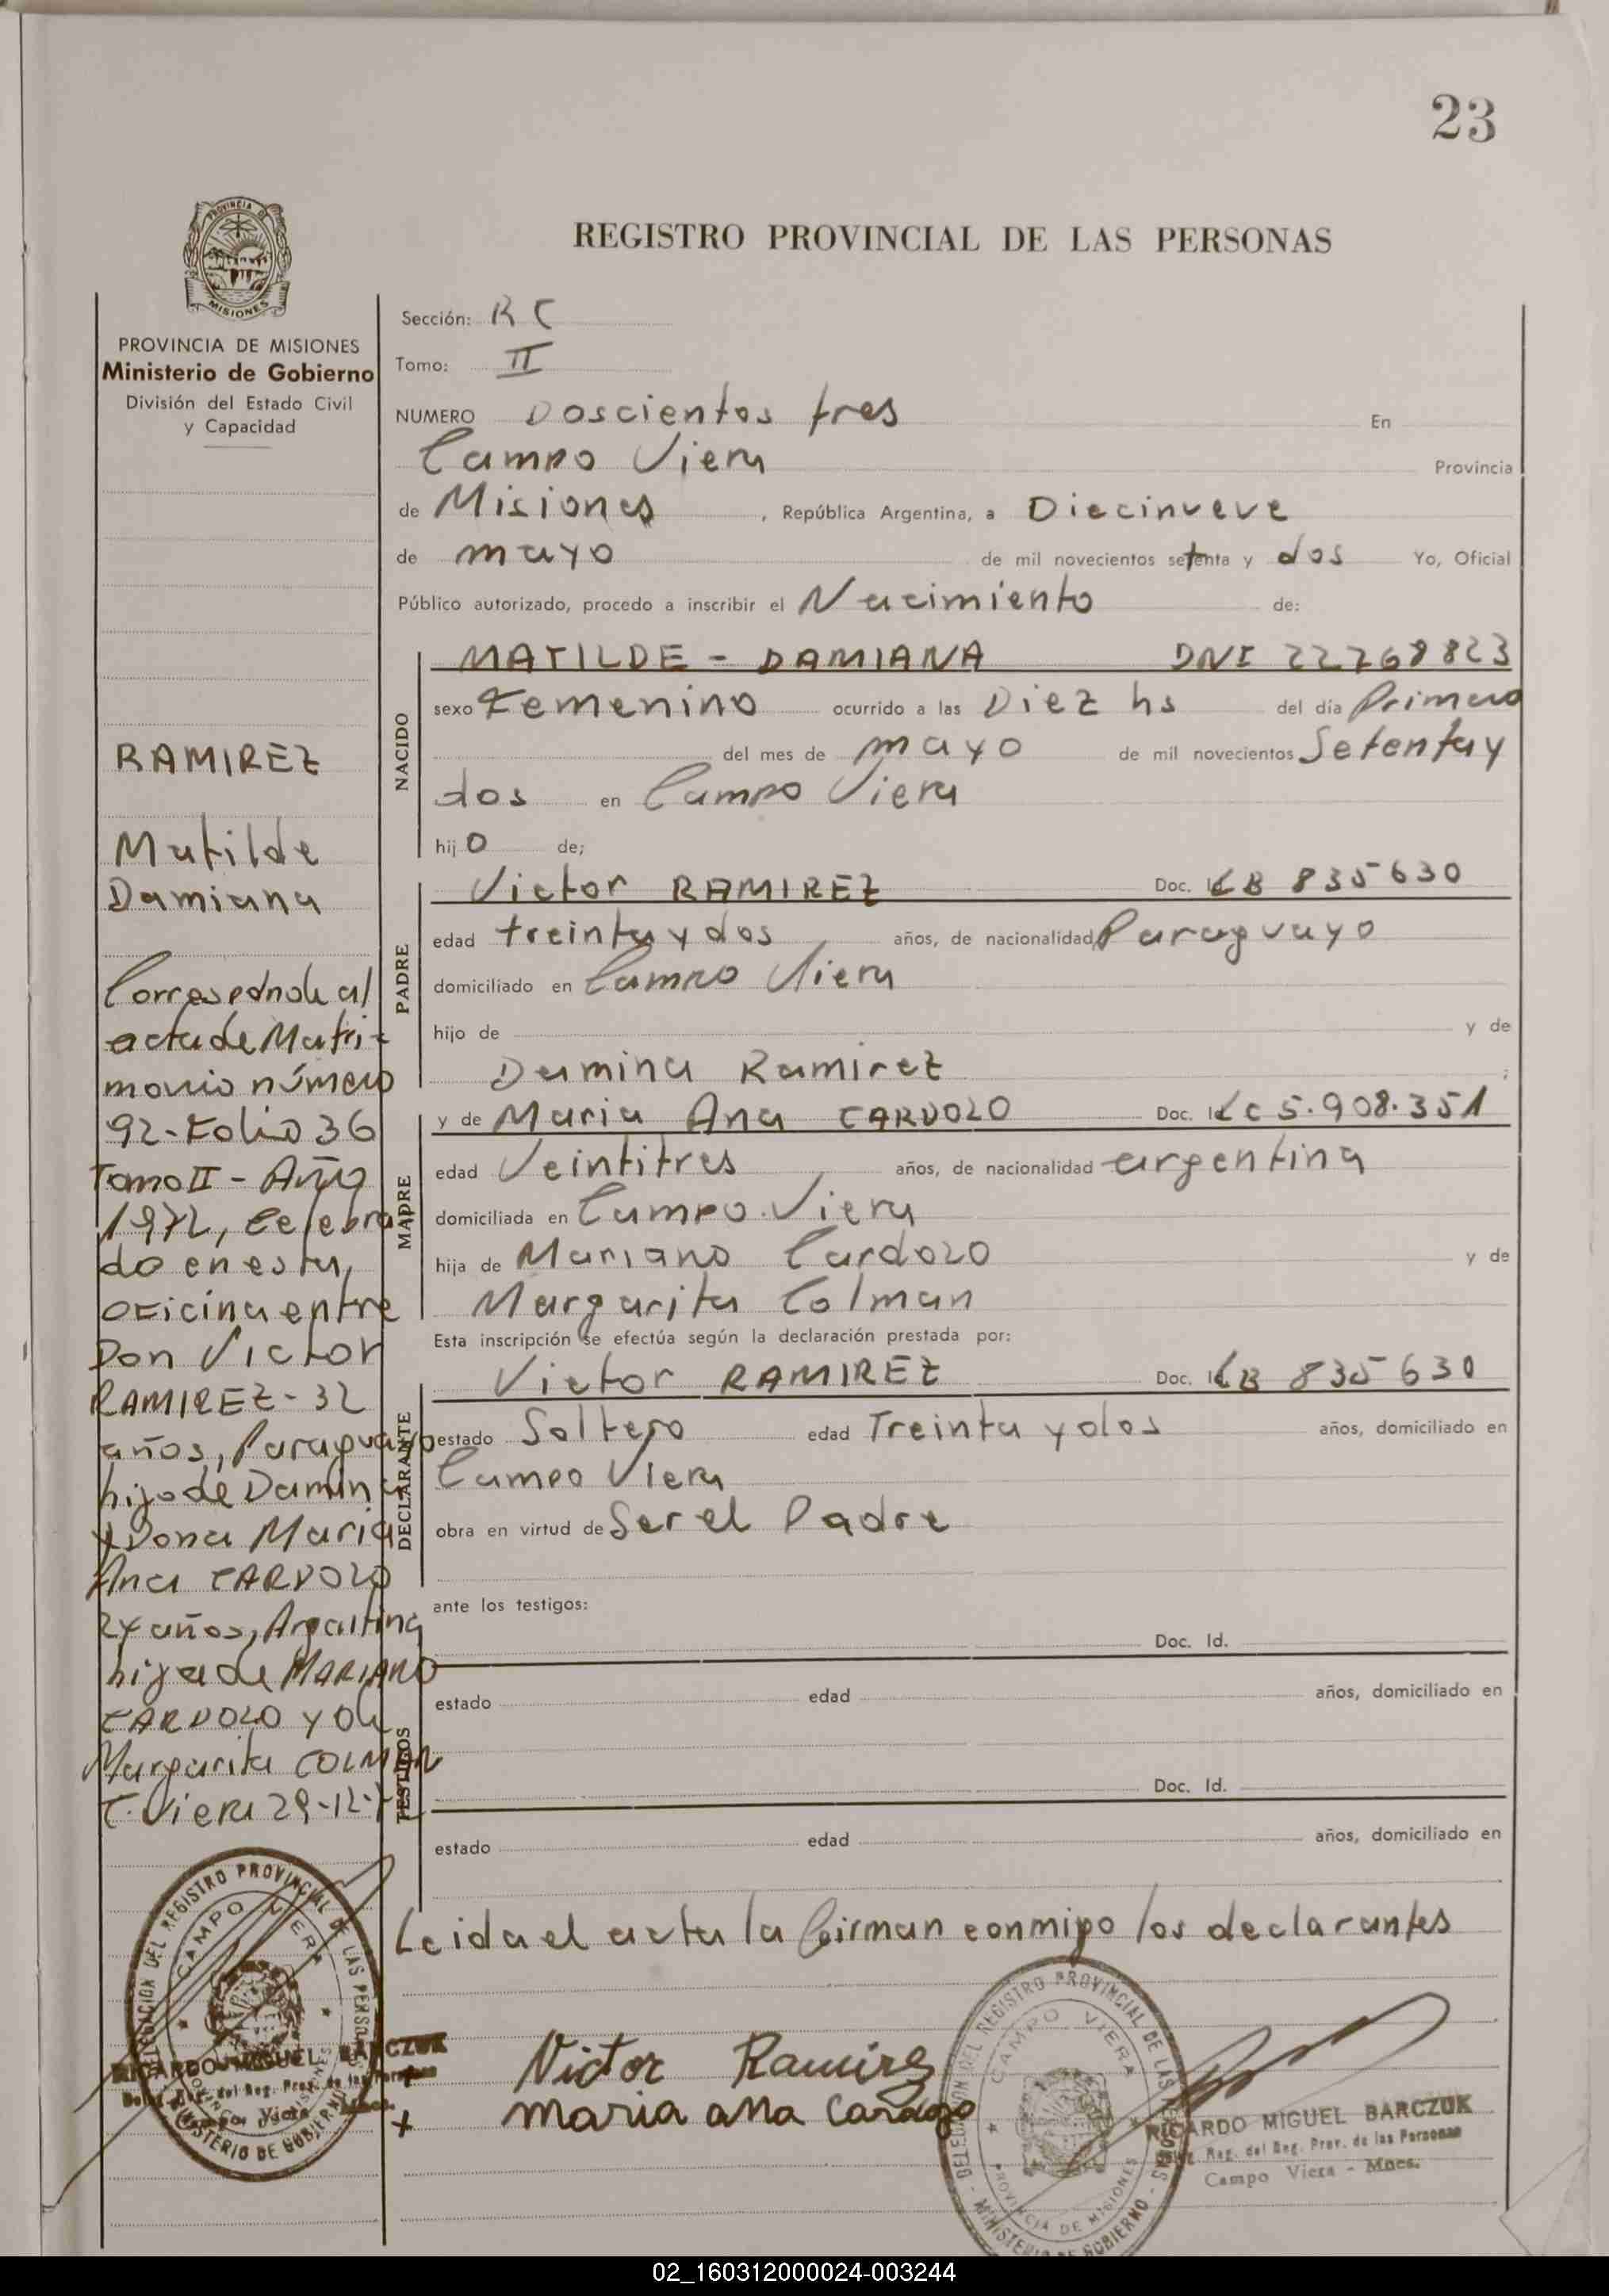 23
REGISTRO PROVINCIAL DE LAS PERSONAS
PROVINCIA DE MISIONES
Ministerio de Gobierno
División del Estado Civil
y Capacidad
RAMIREZ
Matilde
Damiana
Correspdnde al
acta de Matri-
monio número
92-Folio 36
Tomo II - Año
1972, Celebra
do en esta,
oficina entre
Don Victor
RAMIREZ - 32
años, Paraguayo
hijo de Damina
y Dona Maria
Ana CARDOZO
24 años, Argentina
hija de MARIANO
CARDOZO y de
Margarita COLMAN
C. Viera 29-12-72
Sección: RC
Tomo: II
NUMERO Doscientos tres En
Campo Viera Provincia
de Misiones, República Argentina, a Diecinueve
de mayo de mil novecientos setenta y dos Yo, Oficial
Público autorizado, procedo a inscribir el Nacimiento de:
NACIDO
MATILDE - DAMIANA DNI 22768823
sexo Femenino ocurrido a las Diez hs del día Primero
del mes de mayo de mil novecientos Setenta y
dos en Campo Viera
hijo de;
PADRE
Victor RAMIREZ Doc. Id B 835630
edad treinta y dos años, de nacionalidad Paraguayo
domiciliado en Campo Viera
hijo de y de
Damina Ramirez ;
MADRE
y de Maria Ana CARDOZO Doc. LC 5.908.351
edad Veintitres años, de nacionalidad argentina
domiciliada en Campo Viera
hija de Mariano Cardozo y de
Margarita Colman
Esta inscripción se efectúa según la declaración prestada por:
DECLARANTE
Victor RAMIREZ Doc. Id B 835630
estado Soltero edad Treinta y dos años, domiciliado en
Campo Viera
obra en virtud de Ser el Padre
ante los testigos:
TESTIGOS
Doc. Id.
estado edad años, domiciliado en
Doc. Id.
estado edad años, domiciliado en
Leida el acta la firman conmigo los declarantes
Victor Ramirez
x Maria ana Cardozo
DELEGACION DEL REGISTRO PROVINCIAL DE LAS PERSONAS
CAMPO VIERA
PROVINCIA DE MISIONES
MINISTERIO DE GOBIERNO
RICARDO MIGUEL BARCZUK
Reg. del Reg. Prov. de las Personas
Campo Viera - Mnes.
DELEGACION DEL REGISTRO PROVINCIAL DE LAS PERSONAS
CAMPO VIERA
PROVINCIA DE MISIONES
MINISTERIO DE GOBIERNO
RICARDO MIGUEL BARCZUK
Reg. del Reg. Prov. de las Personas
Campo Viera - Mnes.
02_160312000024-003244